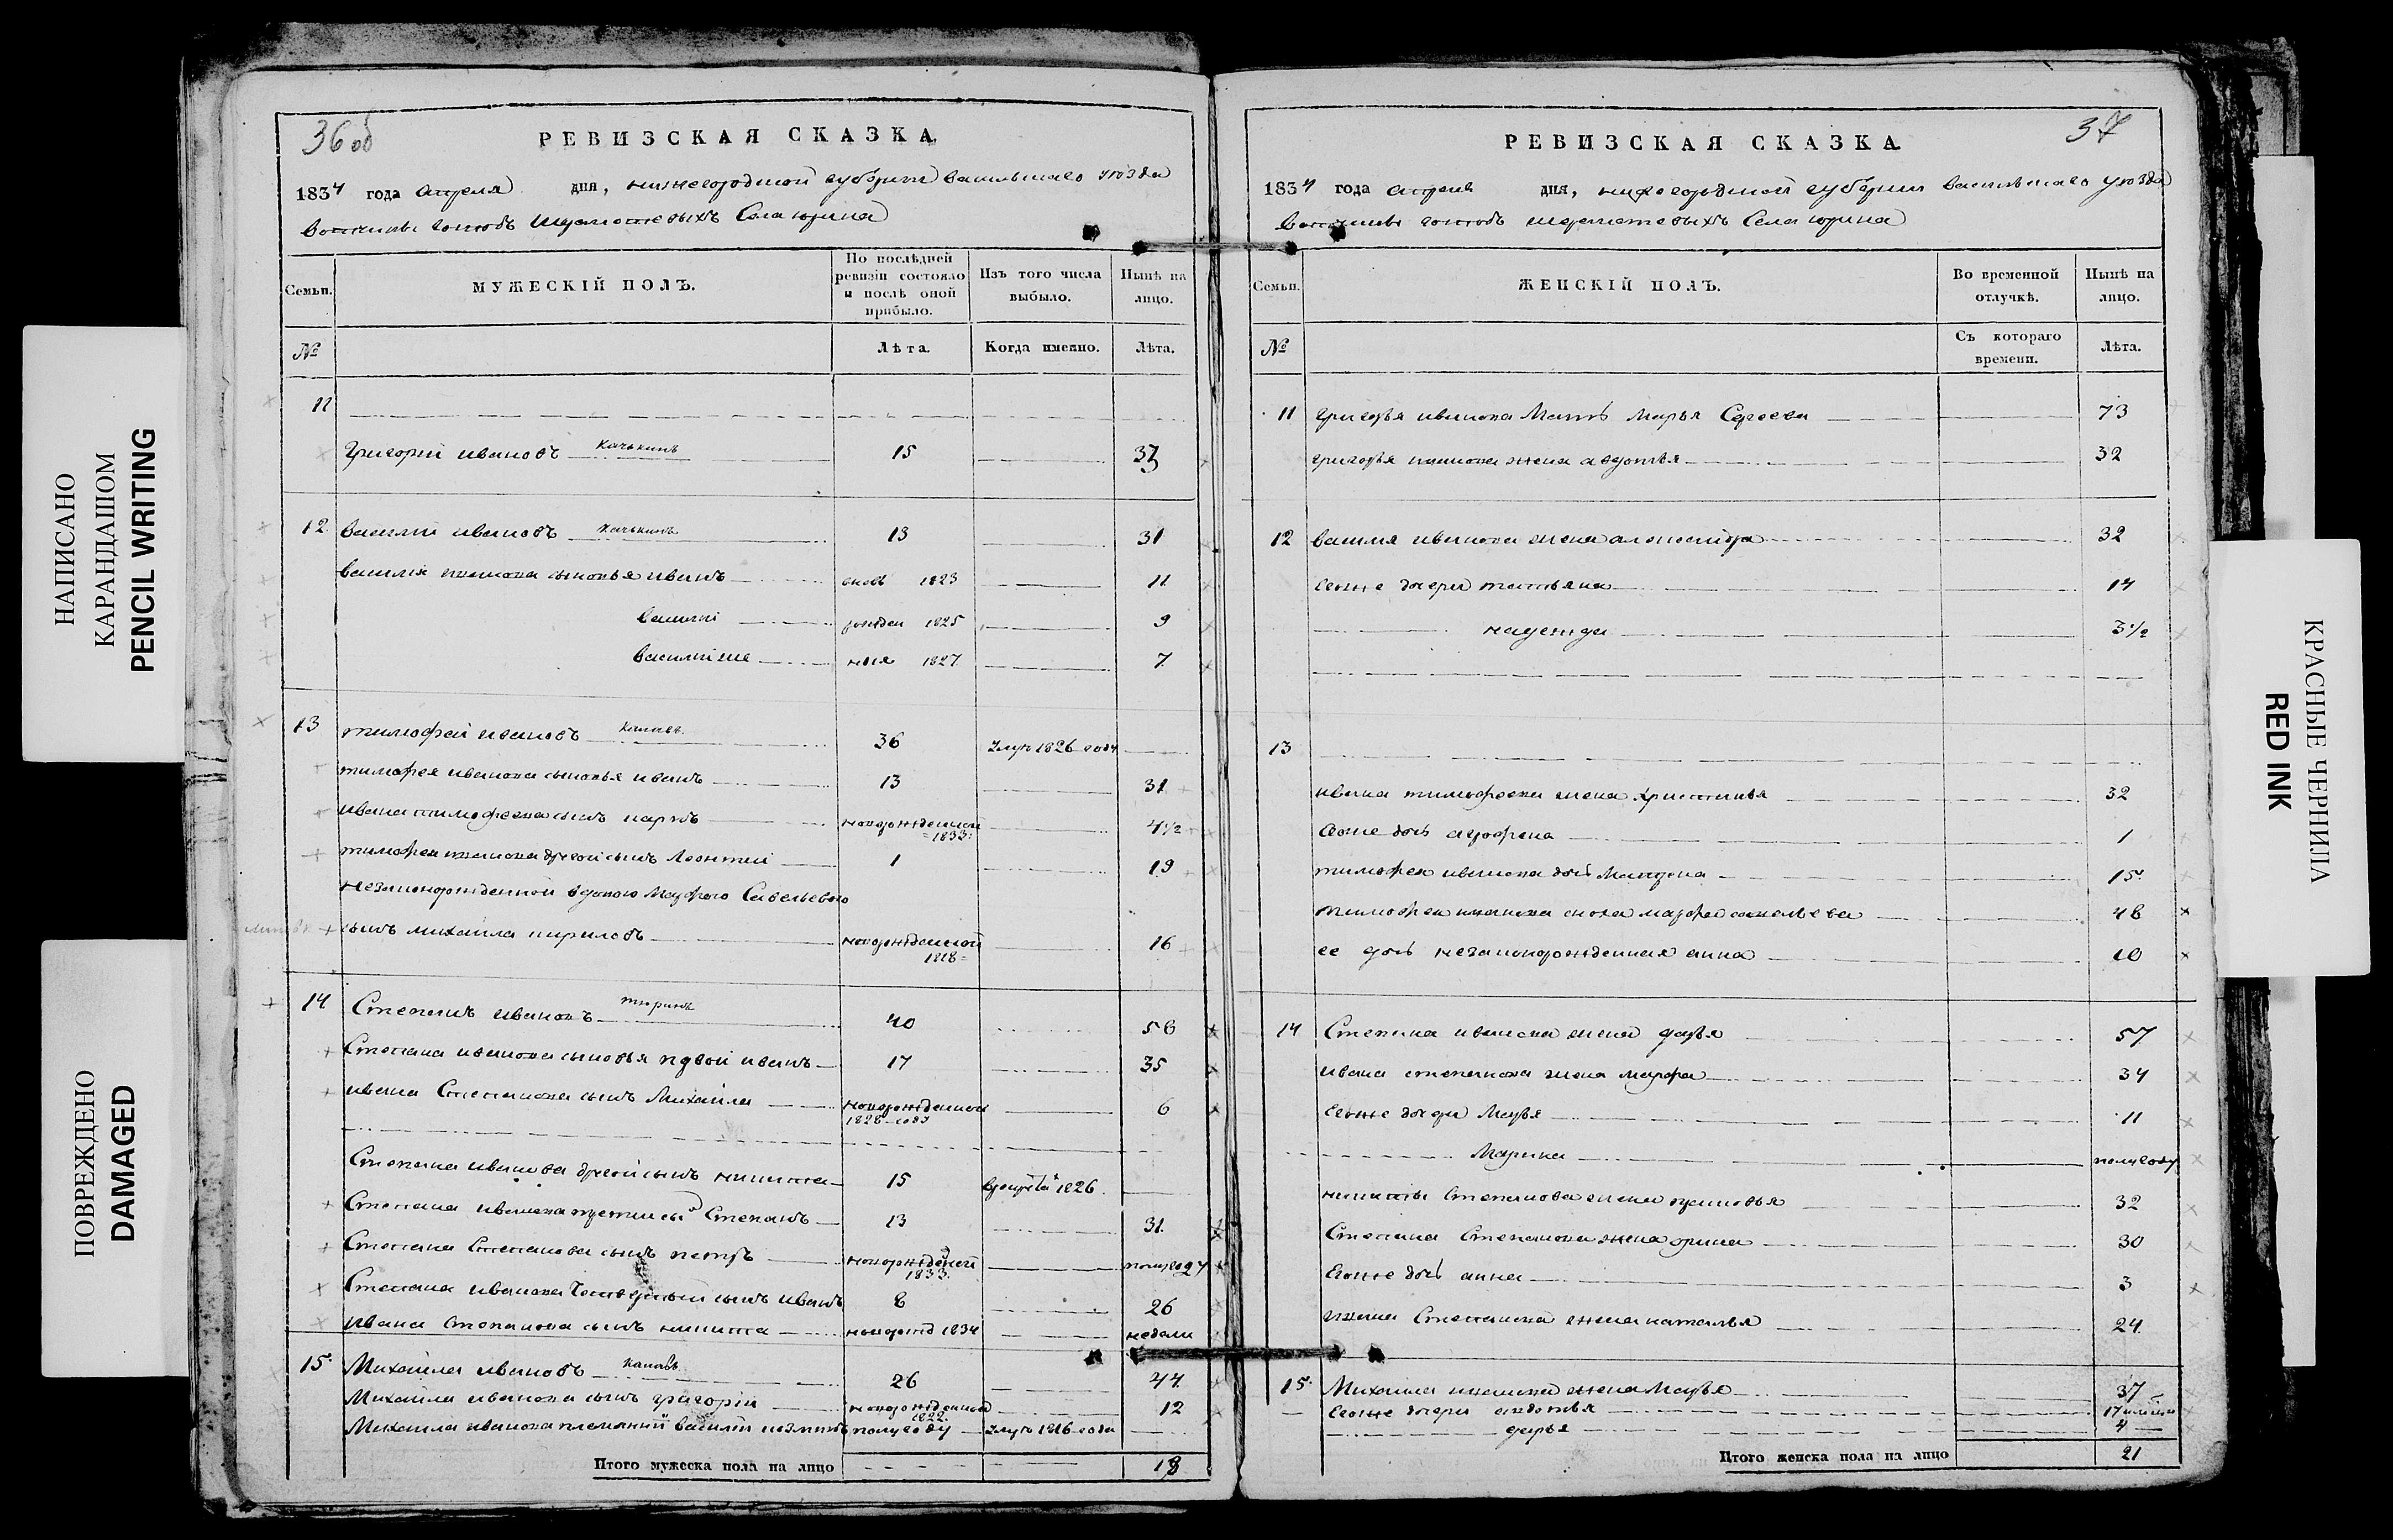 НАПИСАНО
КАРАНДАШОМ
PENCIL WRITING
ПОВРЕЖДЕНО
DAMAGED
36 об
РЕВИЗСКАЯ СКАЗКА.
1834 года апреля дня, нижегородской губернии васильскаго уезда
вотчины господъ шереметевыхъ Села юрина
Семьи.
МУЖЕСКІЙ ПОЛЪ.
По послѣдней ревизіи состояло и послѣ оной прибыло.
Изъ того числа выбыло.
Нынѣ на лицо.
№
Лѣта.
Когда именно.
Лѣта.
11
григорій ивановъ 15 33
12 василій ивановъ 13 31
василія иванова сыновья иванъ 1823 11
василій рожден 1825 9
василій же ныя 1827 7
13 тимофей ивановъ 36 1826 году
тимофея иванова сыновья иванъ 13 31
ивана тимофеева сынъ новорожденной 1833 4 1/2
тимофея иванова другой сынъ леонтей 1 19
незаконорожденной вдовою Марфою Савельевою
сынъ михаила кириловъ новорожденной 1818 16
14 Степанъ ивановъ тюринъ 40 58
Степана иванова сыновья первой иванъ 17 35
ивана Степанова сынъ Михайла новорожденной 1828 года 6
Степана иванова другой сынъ никита 15 1826
Степана иванова третий сынъ Степанъ 13 31
Степана Степанова сынъ петръ новорожденной 1833 полугоду
Степана иванова четвертый сынъ иванъ 8 26
ивана степанова сынъ никита новорожд 1834 недели
15 Михайла ивановъ 26 44
Михайла иванова сынъ григорій новорожденной 1822 12
Михайла иванова племянникъ василій полугоду 1816 года
Итого мужеска пола на лицо 18
37
РЕВИЗСКАЯ СКАЗКА.
1834 года апреля дня, нижегородской губернии васильскаго уезда
вотчины господъ шереметевыхъ Села юрина
Семьи.
ЖЕНСКІЙ ПОЛЪ.
Во временной отлучкѣ.
Нынѣ на лицо.
№
Съ котораго времени.
Лѣта.
11 григорья иванова Мать Марья Сергеева 73
григорья иванова жена авдотья 32
12 василья иванова жена 32
егоже дочери татьяна 14
надежда 3 1/2
13
ивана тимофеева жена христинья 32
егоже дочь 1
тимофея иванова дочь Матрена 15
тимофея иванова сноха марфа савельева 48
ее дочь незаконорожденная анна 10
14 Степана иванова жена дарья 57
ивана степанова жена марфа 34
егоже дочери Марья 11
Марина полугоду
никиты Степанова жена прасковья 32
Степана Степанова жена орина 30
Егоже дочь анна 3
ивана Степанова жена наталья 24
15 Михайла иванова жена Марья 37
Егоже дочери авдотья 17
дарья 4
Итого женска пола на лицо 21
КРАСНЫЕ ЧЕРНИЛА
RED INK